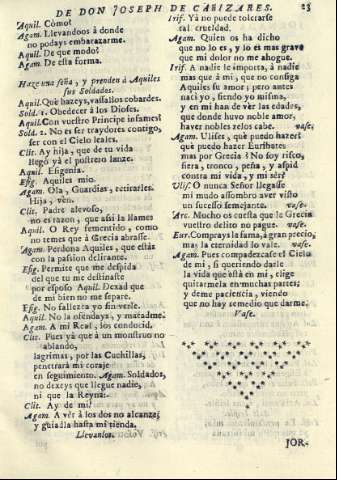 DE DON JOSEPH DE CAñIZARES. 23
Aquil. Còmo?
Agam. Llevandoos à donde
no podays embarazarme.
Aquil. De que modo?
Agam. De esta forma.
Haze una seña, y prenden à Aquiles
sus Soldados.
Aquil. Què hazeys, vassallos cobardes.
Sold. 1. Obedecer à los Dioses.
Aquil. Con vuestro Principe infames!
Sold. 2. No es ser traydores contigo,
ser con el Cielo leales.
Clit. Ay hija, que de tu vida
llegò yà el postrero lanze.
Aquil. Efigenia.
Efig. Aquiles mio.
Agam. Ola, Guardias, retirarles.
Hija, vèn.
Clit. Padre alevoso,
no es razon, que assi la llames
Aquil. O Rey fementido, como
no temes que à Grecia abrase.
Agam. Perdona Aquiles, que estàs
con la passion delirante.
Efig. Permite que me despida
del que tu me destinaste
por esposo Aquil. Dexad que
de mi bien no me separe.
Efig. No fallezca yo sin verle.
Aquil. No la ofendays, y matadme.
Agam. A mi Real, los conducid.
Clit. Pues yà que à un monstruo no
ablando,
lagrimas, por las Cuchillas,
penetrarà mi coraje
en seguimiento. Agam. Soldados,
no dexeys que llegue nadie,
ni que la Reyna:
Clit. Ay de mi!
Agam. A vèr à los dos no alcanze;
y guia lla hasta mi tienda.
Llevanlos.
Irif. Yà no puede tolerarse
tal crueldad.
Agam. Quien os ha dicho
que no lo es, y lo es mas grave
que mi dolor no me ahogue.
Irif. A nadie le importa, à nadie
mas que à mi, que no consiga
Aquiles su amor; pero antes
nacì yo, siendo yo misma,
y en mi han de vèr las edades,
que donde huvo noble amor,
haver nobles zelos cabe. vase,
Agam. Ulises, què puedo hazer?
què puedo hazer Euribates
mas por Grecia? No soy risco,
fiera, tronco, peña, y aspid
contra mi vida, y mi sèr?
Ulis. O nunca Señor llegasse
mi mudo assombro aver visto
un sucesso semejante. vase.
Arc. Mucho os cuesta que le Grecia
vuestro delito no pague. vase.
Eur. Compays la fama, à gran precio,
mas la eternidad lo vale. vase.
Agam. Pues compadezcase el Cielo
de mi, si queriendo darle
la vida que està en mi, elige
quitarmela en muchas partes;
y deme paciencia, viendo
que no hay remedio que darme.
Vase.
JOR-